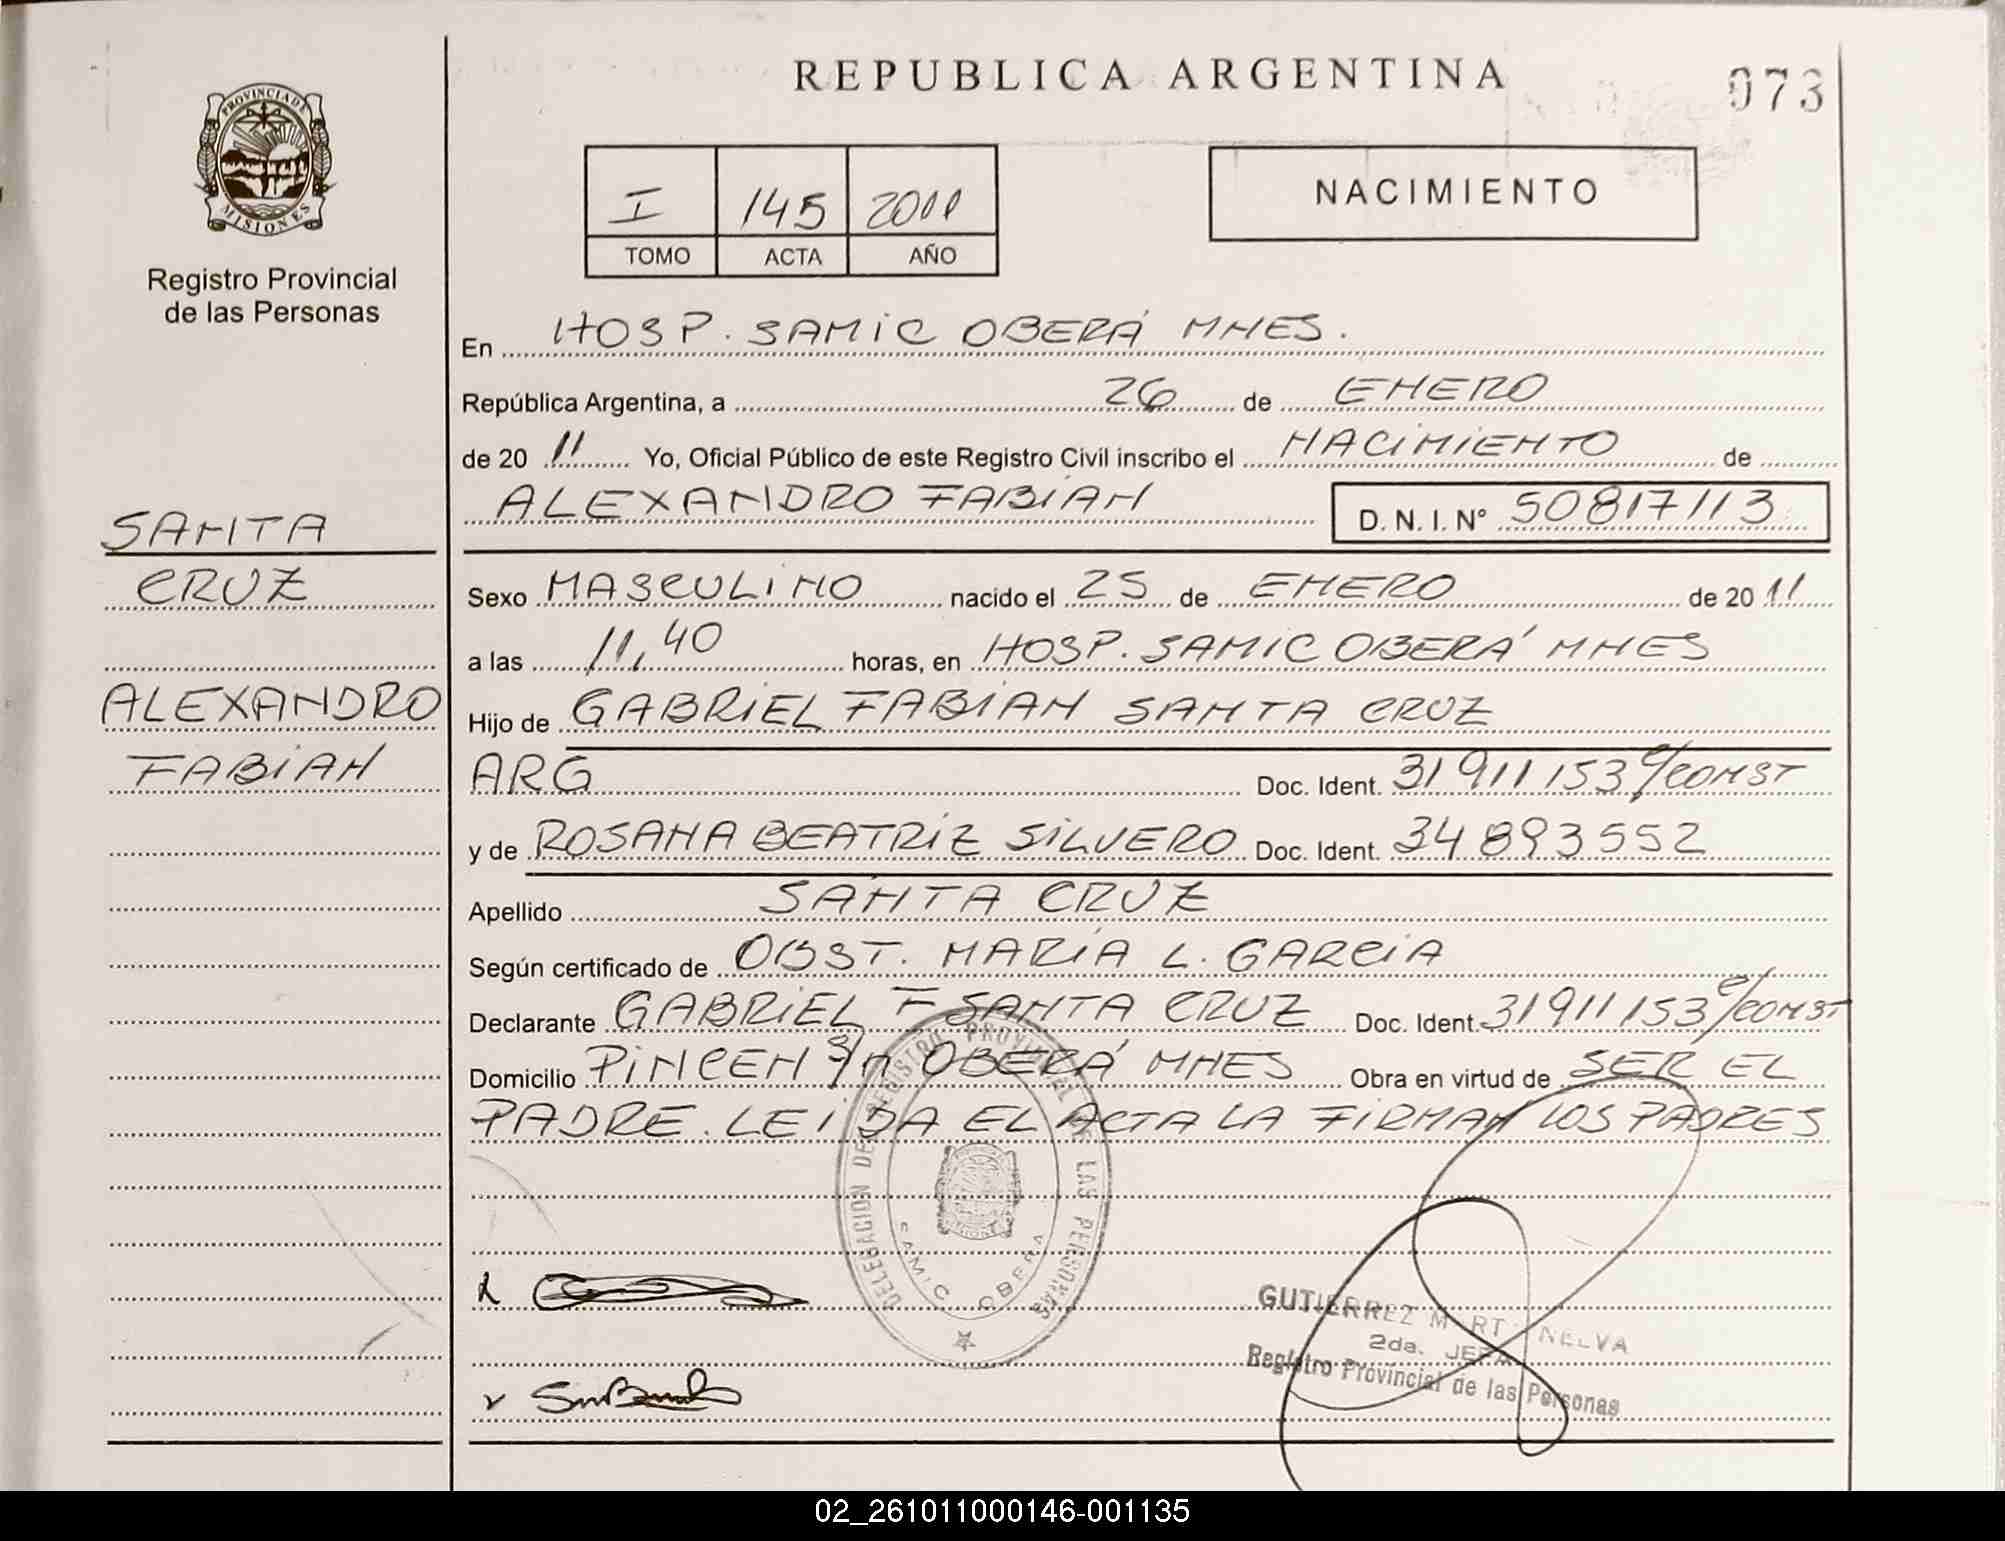 REPUBLICA ARGENTINA
073
PROVINCIA DE
MISIONES
Registro Provincial
de las Personas
I 145 2011
TOMO ACTA AÑO
NACIMIENTO
En HOSP. SAMIC OBERÁ MNES.
República Argentina, a 26 de ENERO
de 20 11 Yo, Oficial Público de este Registro Civil inscribo el NACIMIENTO de
ALEXANDRO FABIAN D. N. I. Nº 50817113
SANTA
CRUZ
ALEXANDRO
FABIAN
Sexo MASCULINO nacido el 25 de ENERO de 20 11
a las 11,40 horas, en HOSP. SAMIC OBERÁ MNES
Hijo de GABRIEL FABIAN SANTA CRUZ
ARG Doc. Ident. 31911153 c/CONST
y de ROSANA BEATRIZ SILVERO Doc. Ident. 34893552
Apellido SANTA CRUZ
Según certificado de OBST. MARÍA L. GARCIA
Declarante GABRIEL F SANTA CRUZ Doc. Ident. 31911153 c/CONST
Domicilio PINCEN S/N OBERÁ MNES Obra en virtud de SER EL
PADRE. LEIDA EL ACTA LA FIRMAN LOS PADRES
DELEGACION DE REGISTRO PROVINCIAL DE LAS PERSONAS
SAMIC OBERA
GUTIERREZ NELVA
2da. JEFA
Registro Provincial de las Personas
02_261011000146-001135